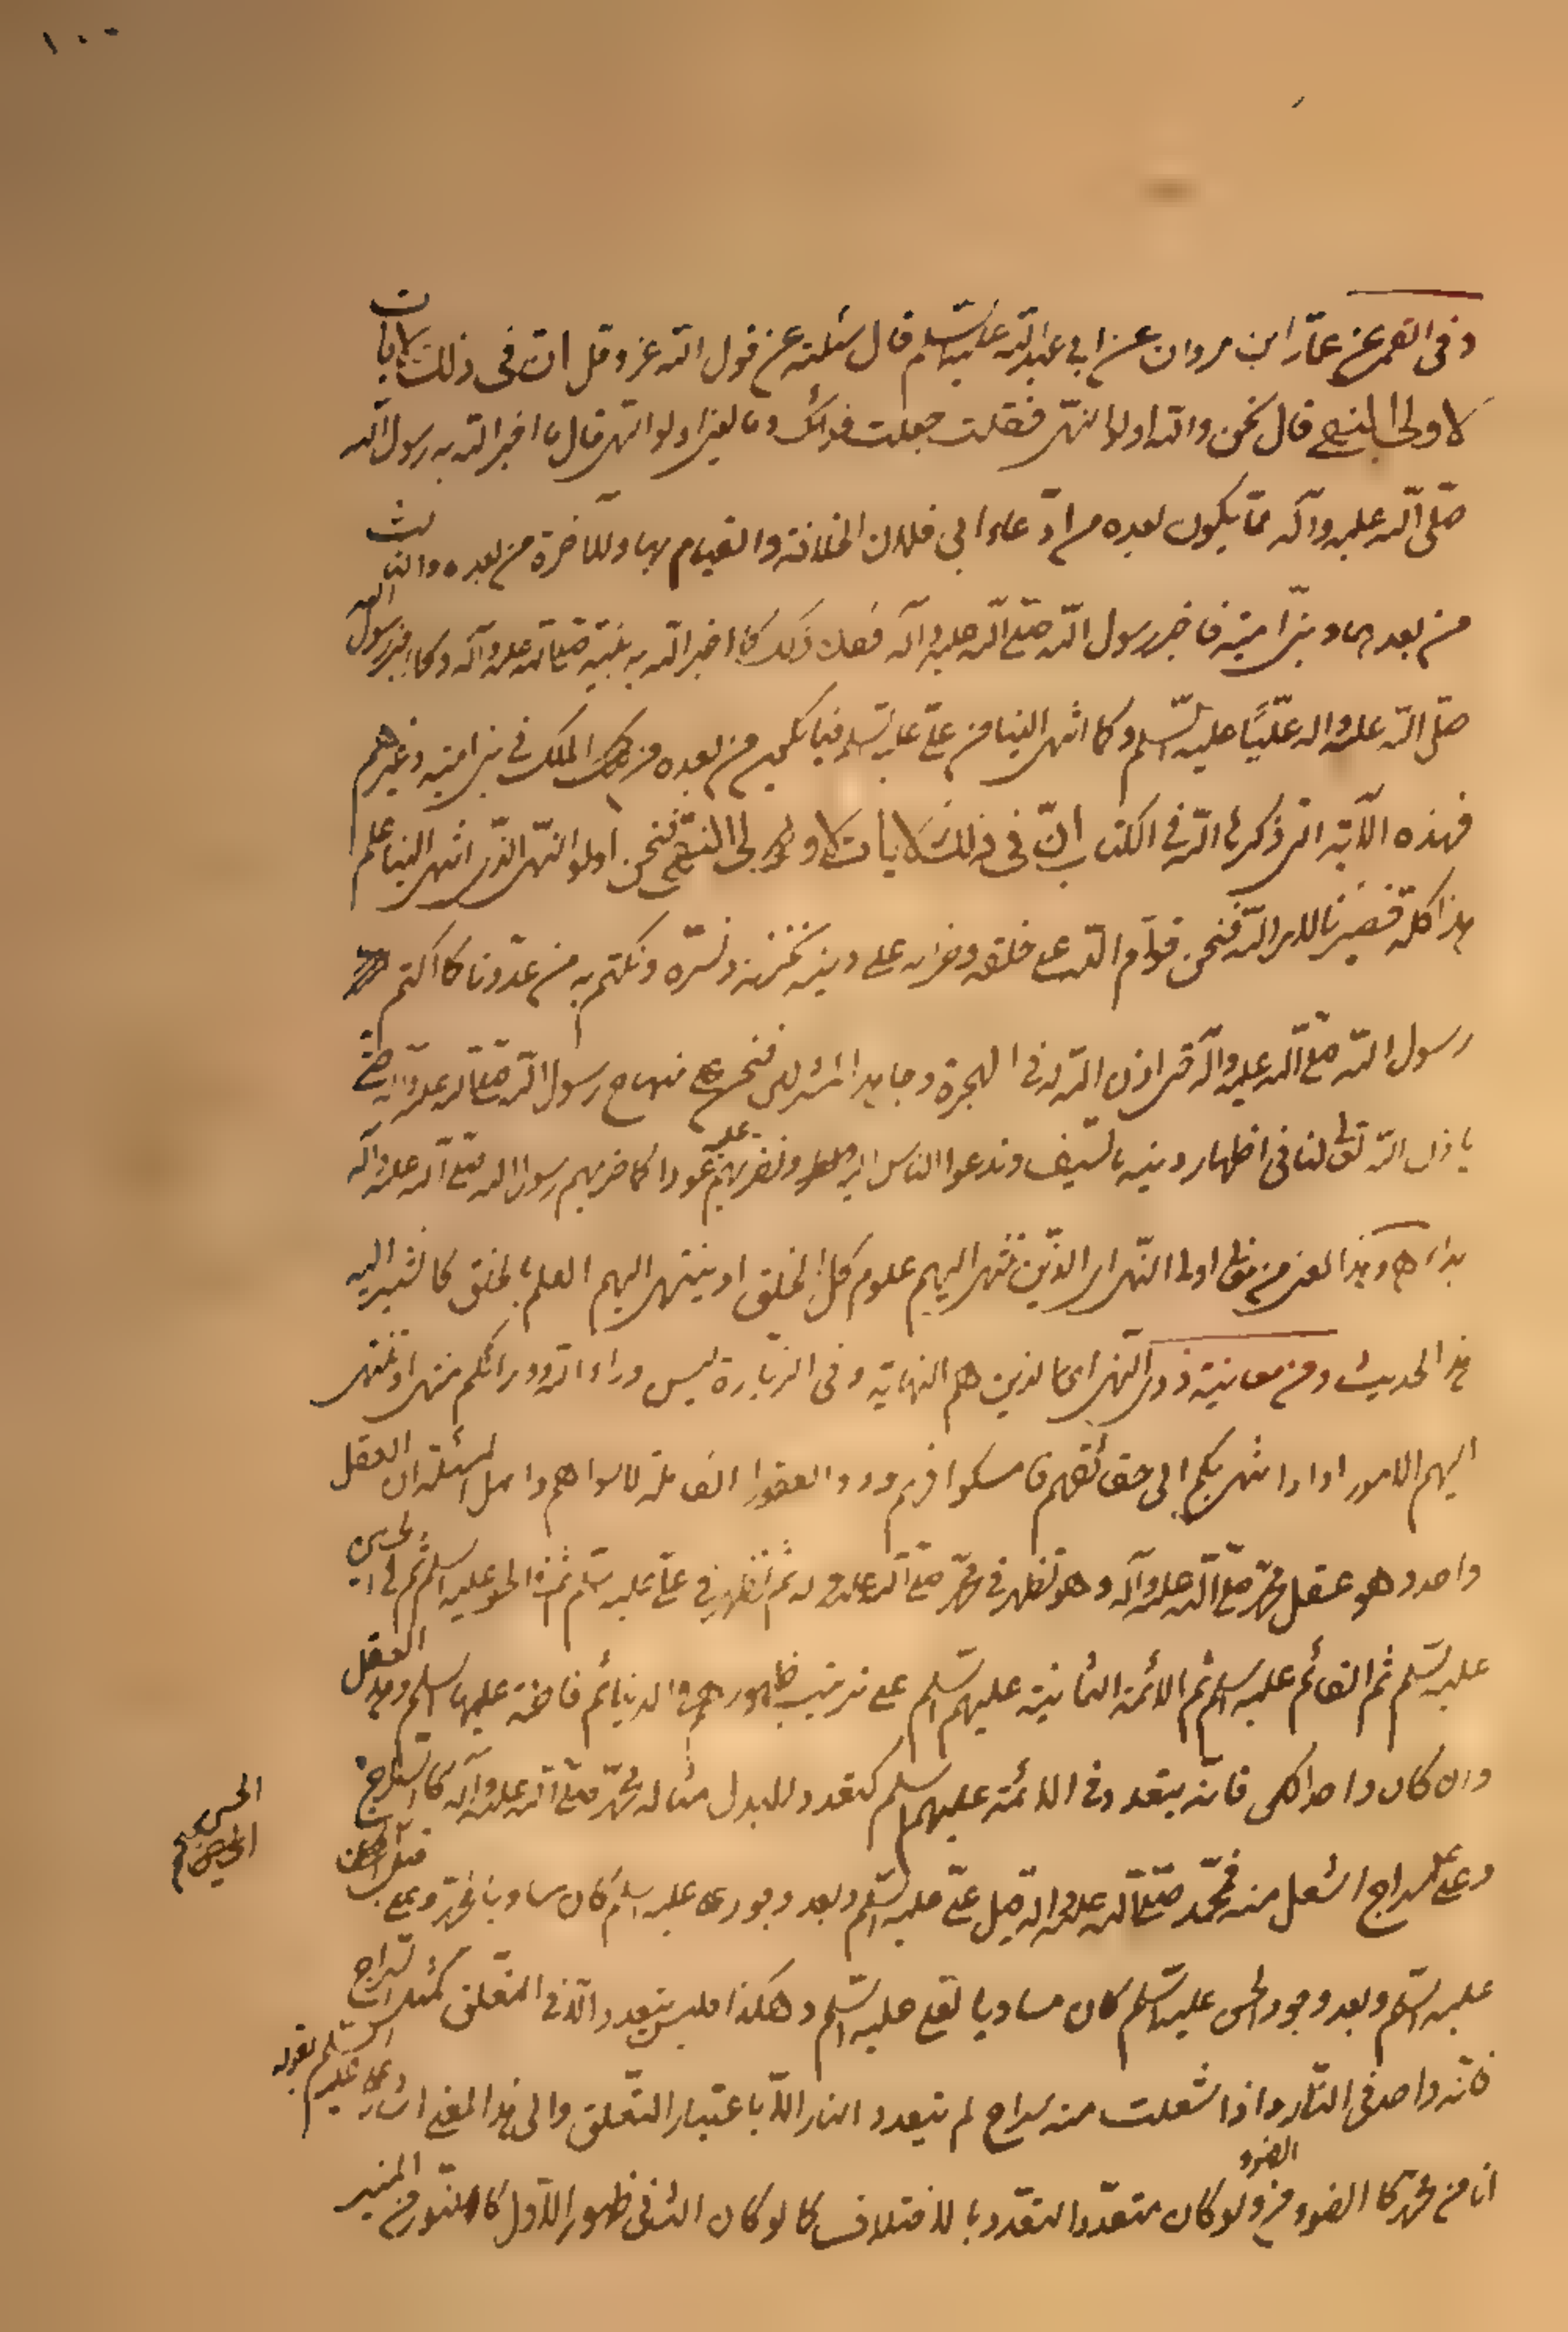 ١٠٠
وفى القمى عن عمار ابن مروان عن ابي عبد الله عليه السلم قال سئلته عن قول الله عز وجل ان فى ذلك لايات
لاولى النهى قال نحن والله اولوا النهى فقلت جعلت فداك وما معنى اولوا النهى قال ما اخبر الله به رسول الله
صلى الله عليه وآله مما يكون بعده من ادعاء ابي فلان الخلافة والقيام بها وللآخر من بعده والثالث
من بعدهما وبنى امية فاخبر رسول الله صلى الله عليه وآله فكان ذلك كما اخبر الله به نبيه صلى الله عليه وآله وكما اخبر رسول الله
صلى الله عليه وآله عليًا عليه السلم وكما انتهى الينا من على عليه السلم فيما يكون من بعده من الملك فى بنى امية وغيرهم
فهذه الآية التى ذكرها الله فى الكتاب ان فى ذلك لايات لاولى النهى فنحن اولوا النهى الذى انتهى الينا علم
هذا كله فصبرنا لامر الله فنحن قوام الله على خلقه وخزانه على دينه نخزنه ونستره ونكتم به من عدونا كما اكتتم
رسول الله صلى الله عليه وآله حتى اذن الله له فى الهجرة وجاهد المشركين فنحن على منهاج رسول الله صلى الله عليه وآله حتى
ياذن الله تعالى لنا فى اظهار دينه بالسيف وندعوا الناس اليه ونضربهم عليه عودا كما ضربهم رسول الله صلى الله عليه وآله
بداء اه وهذا المعنى من اولى النهى اى الذين تنتهى اليهم علوم كل الخلق او ينتهى اليهم العلم بالخلق كما تشير اليه
هذا الحديث ومن معانيه ذوى النهى اى الذين هم النهاية وفى الزيارة ليس وراء الله وورائكم منتهى او تنتهى
اليهم الامور او اذا انتهى بكم الى حقائقهم فامسكوا ذوو العقول الفاضلة لا سواهم واصل المسئلة ان العقل
واحد وهو عقل محمد صلى الله عليه وآله وهو تظهر فى محمد صلى الله عليه وآله ثم تظهر فى على عليه السلم ثم فى الحسن عليه السلم ثم فى الحسين
عليه السلم ثم القائم عليه السلم ثم الائمة الثمانية عليهم السلم على ترتيب ظهورهم فى الدنيا ثم فاطمة عليها السلم وهذا العقل
وان كان واحدا لكن فانه يتعدد فى الائمة عليهم السلم كتعدد البدل مثاله محمد صلى الله عليه وآله كالسراج
وعلى كسراج اشعل منه فمحمد صلى الله عليه وآله قبل على عليه السلم وبعد وجود على عليه السلم كان مساويا لمحمد وعلى قبل الحسن
عليه السلم وبعد وجود الحسن عليه السلم كان مساويا لعلى عليه السلم وهكذا فليس يتعدد الا فى المتعلق كمثل السراج
فانه واحد فى النار واذا اشعلت منه سراج لم يتعدد النار الا باعتبار التعلق والى هذا المعنى اشار على عليه السلم بقوله
انا من محمد كالضوء من الضوء ولو كان متعددا لتعدد بالاختلاف كما لو كان الثانى ظهور الاول كالنور من المنير